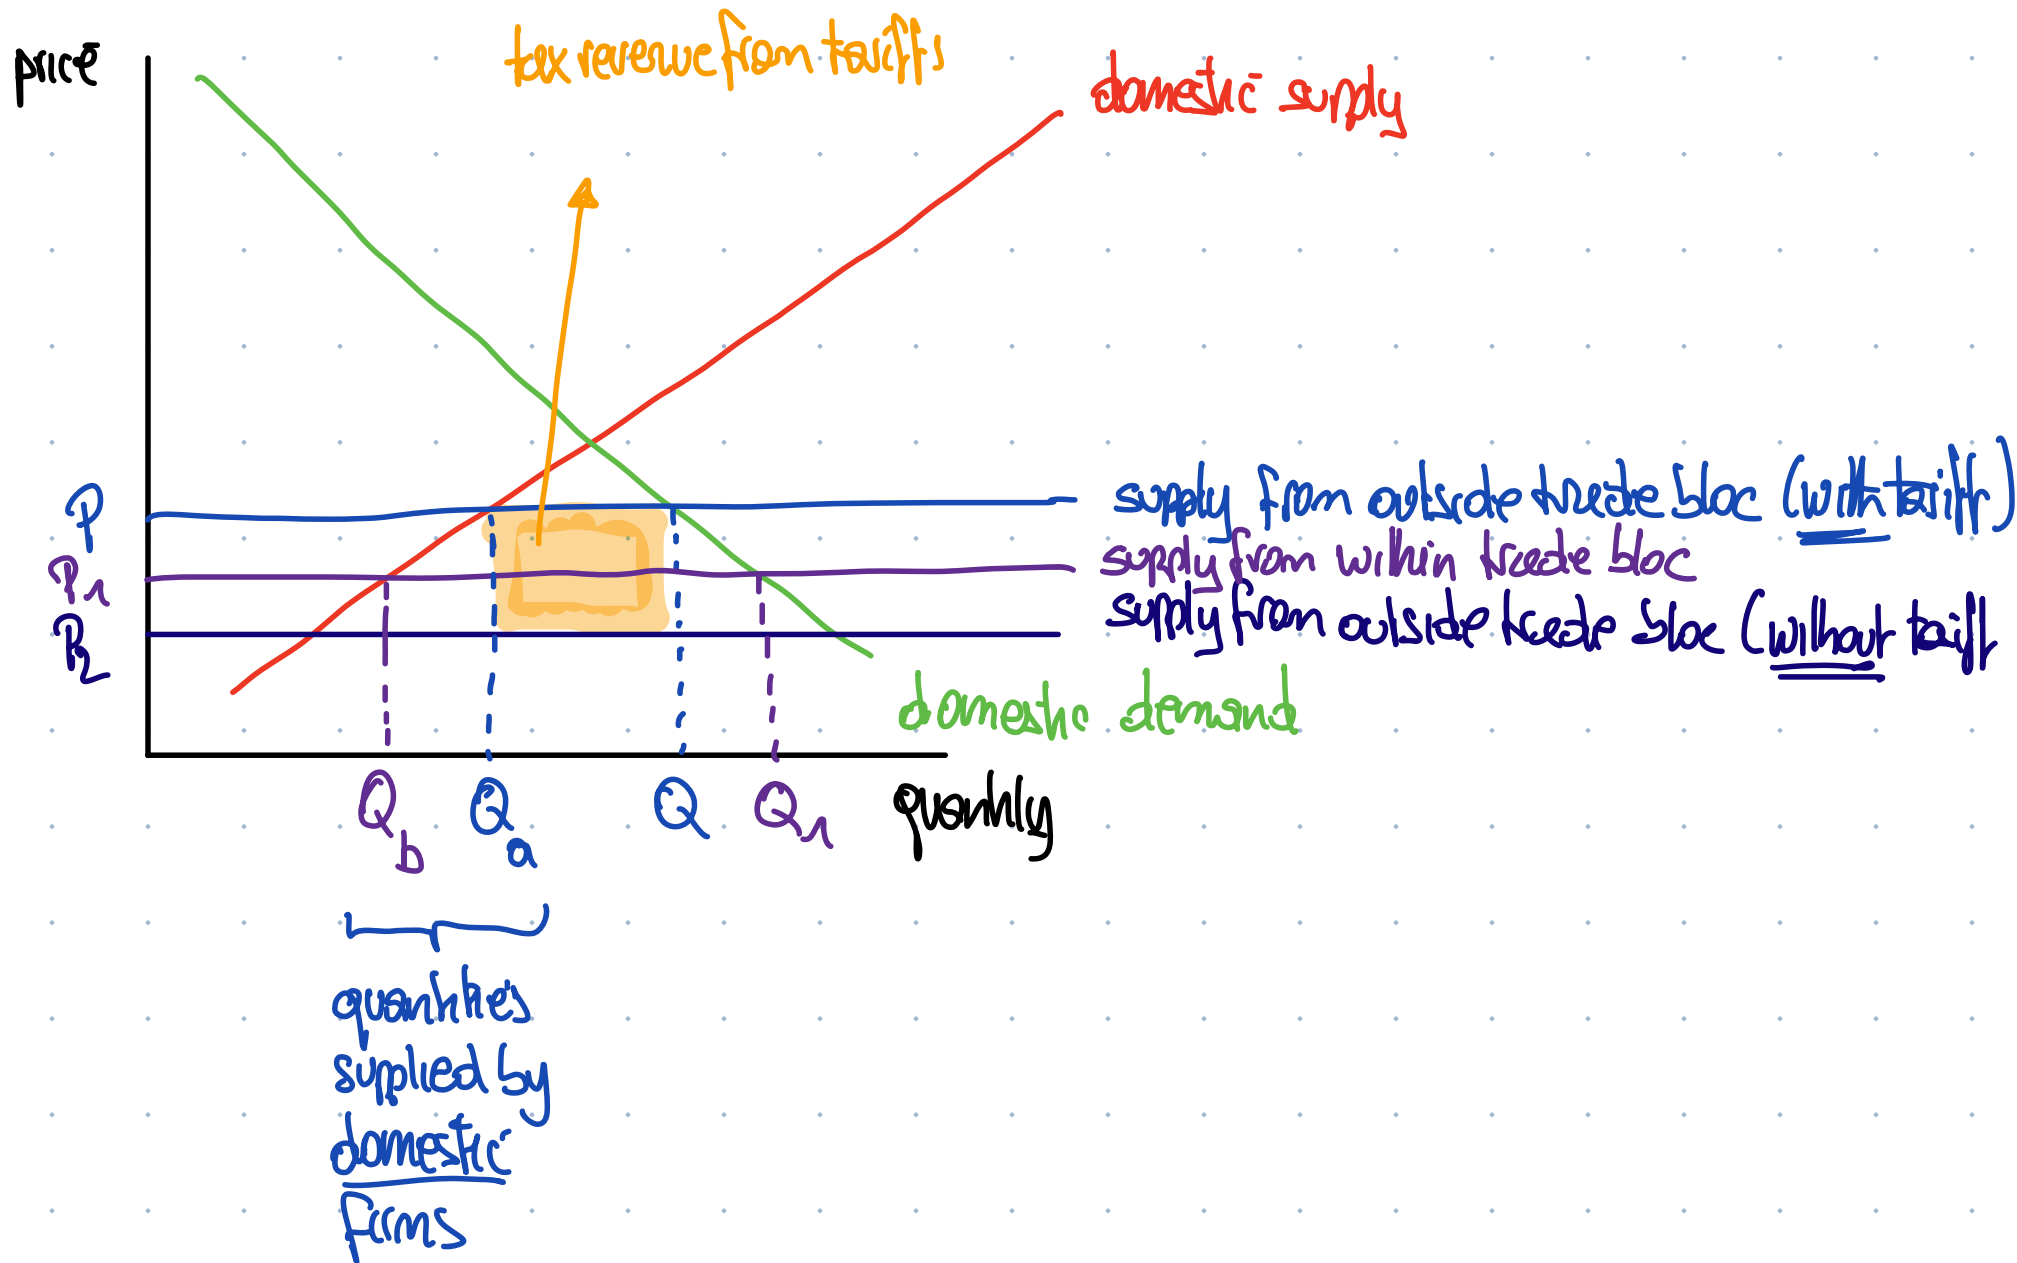 price
tax revenue from tariffs
domestic supply
P
supply from outside trade bloc (with tariff)
P1
supply from within trade bloc
P2
supply from outside trade bloc (without tariff
domestic demand
Qb
Qa
Q
Q1
quantity
quantities
supplied by
domestic
firms